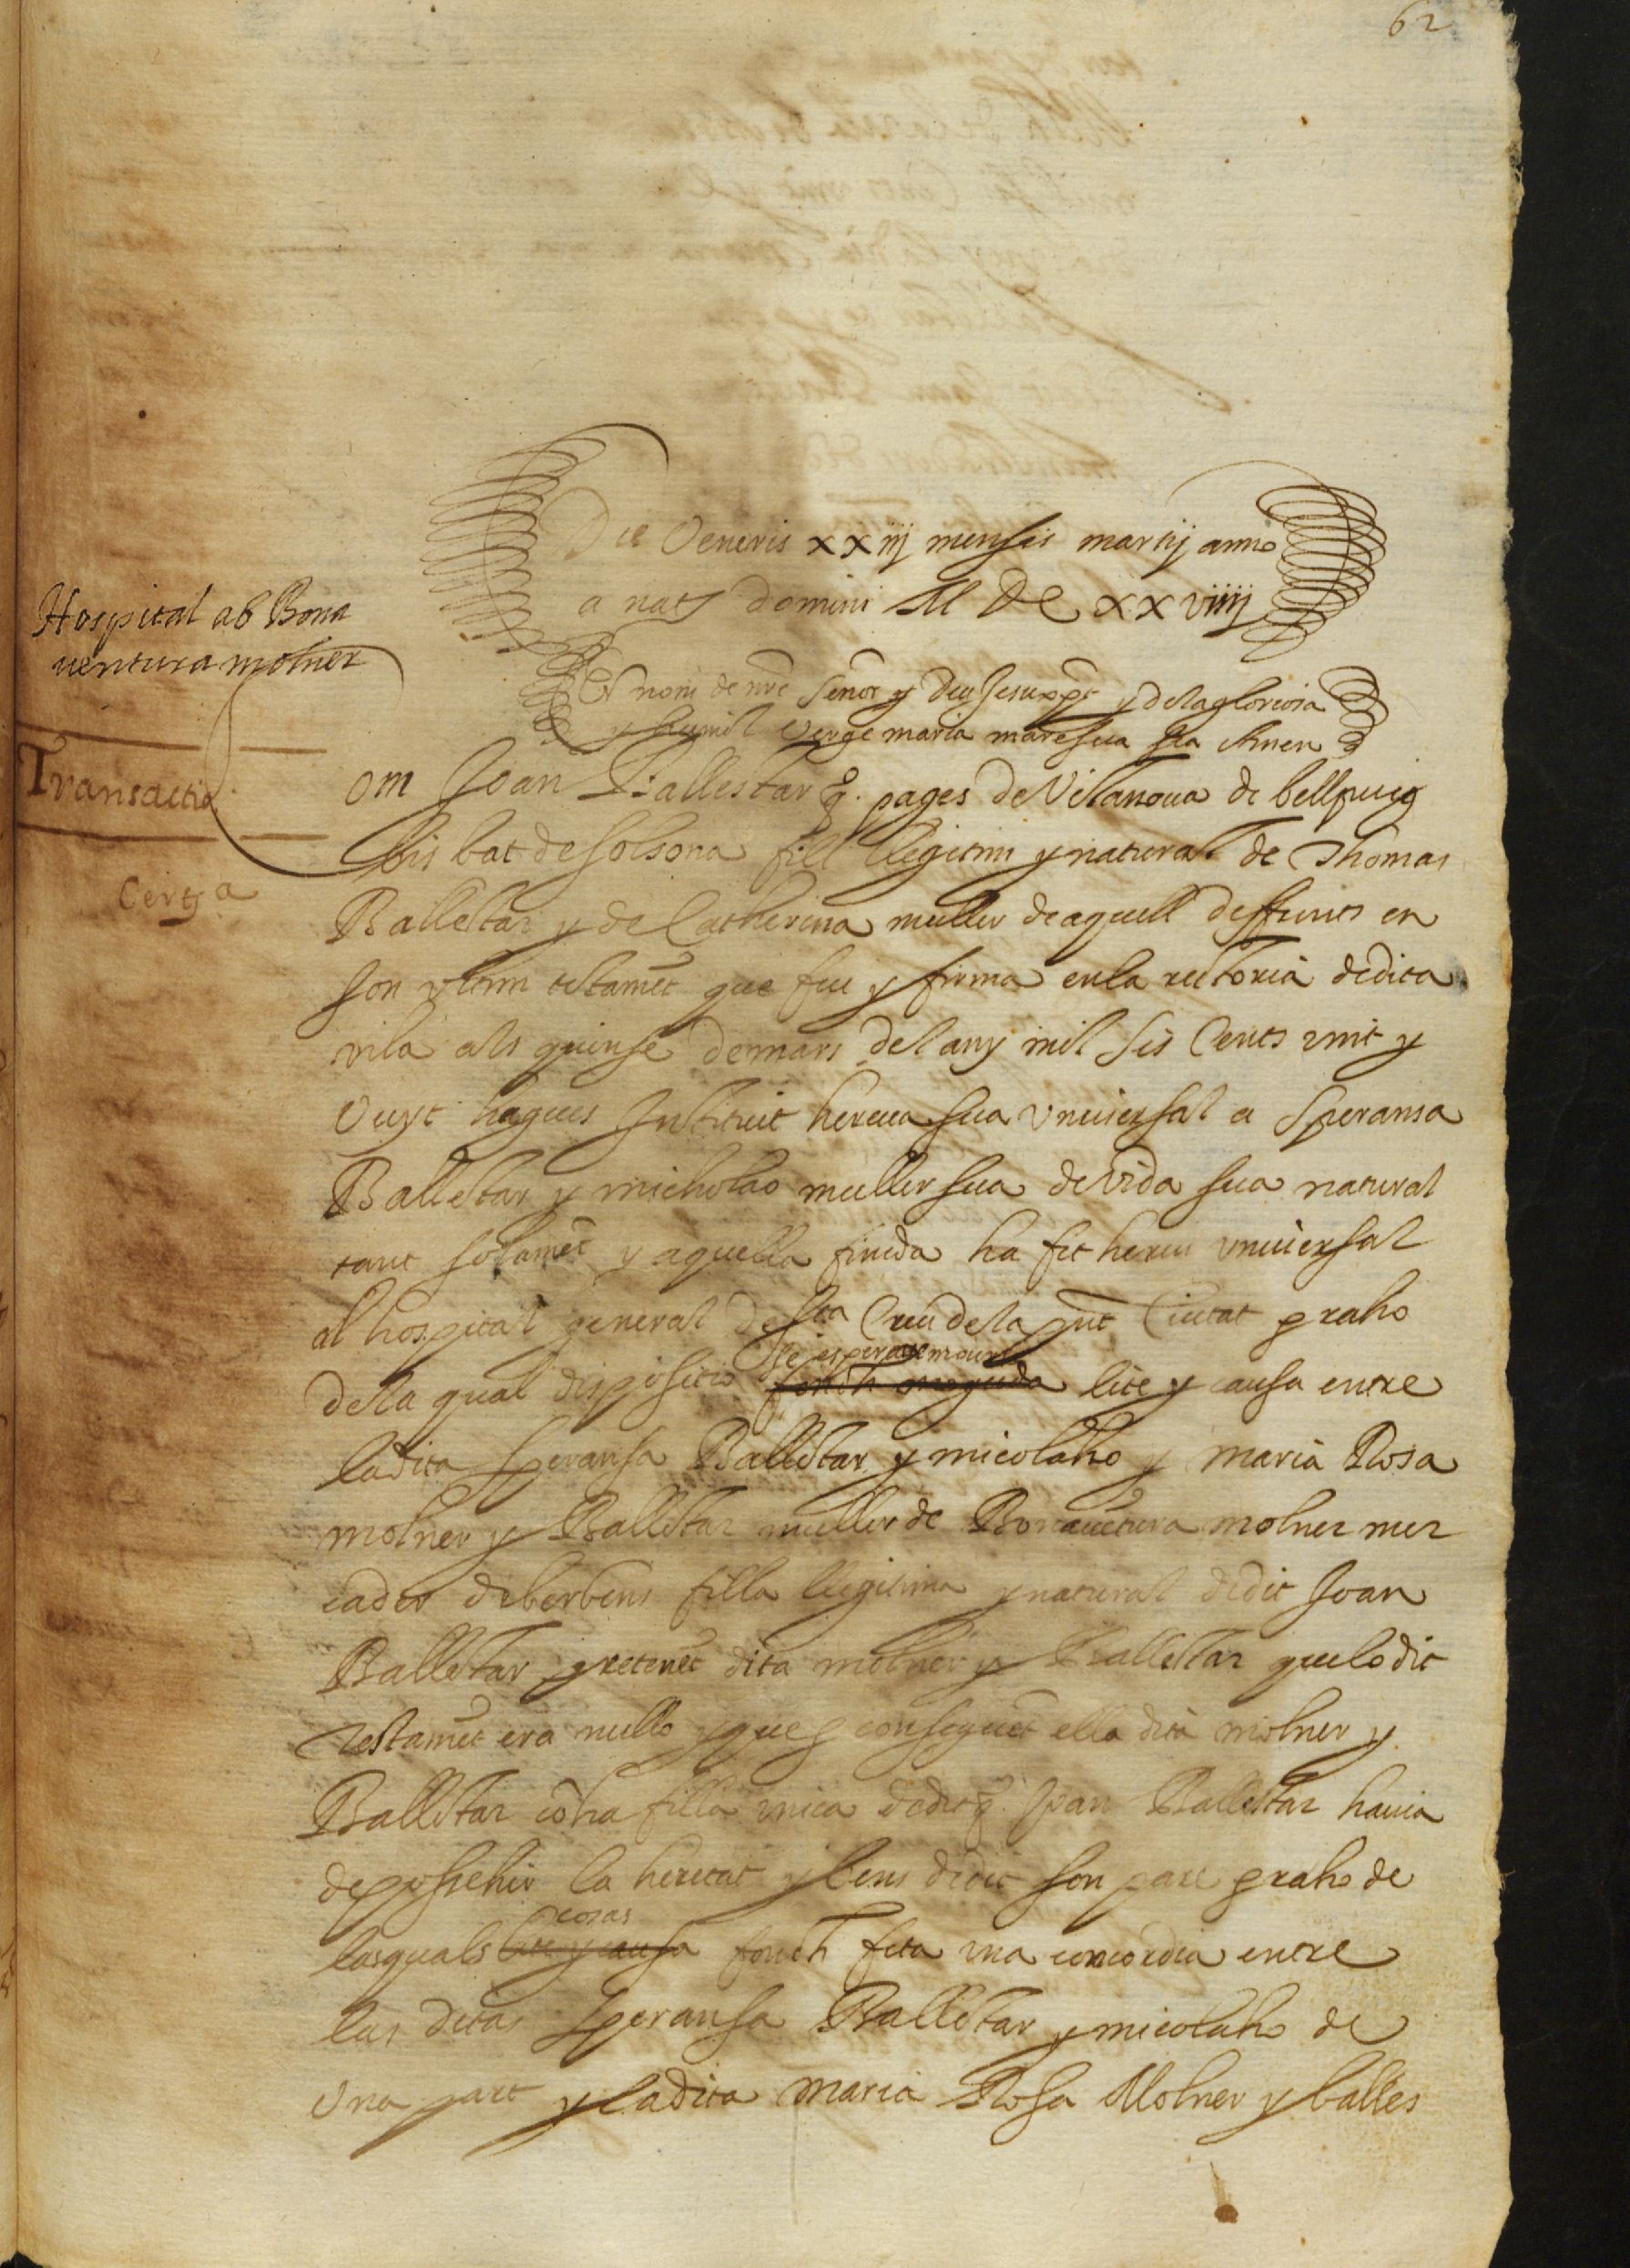 62
Die Veneris xxiij mensis martij anno
a nat domini M DC xxviiij
Hospital ab Bona
ventura molner
Transactio
Certa
En nom de nre señor y deu Jesuxpt y dela gloriosa
y humil verge maria mare sua sia Amen
Com Joan Ballestar q. pages de Vilanova de bellpuig
bisbat de solsona fill llegitim y natural de Thomas
Ballestar y de Catherina muller de aquell deffuncts en
son ultim testamet que feu y firma en la rectoria de dita
vila als quinse de mars del any mil sis Cents vint y
Vuyt hagues Instituit hereua sua vniversal a Speransa
Ballestar y micholao muller sua de vida sua natural
tant solamet y aquella finida ha fet hereu vniversal
al hospital general de sta Creu dela pnt Ciutat p raho
se esperave moure
dela qual dispositio fonch moguda lite y causa entre
la dita Speransa Ballestar y micolaho y maria Rosa
molner y Ballestar muller de Bonauetura molner mer
cader de berbens filla llegitima y natural de dit Joan
Ballestar pretenet dita molner y Ballestar que lo dit
testamet era nullo y que p conseguet ella dita molner y
Ballestar co ha filla vnica de dit q. Joan Ballestar havia
de possehir la heretat y bens de dit son pare p raho de
cosas
las quals lite y causa fonch feta vna concordia entre
las ditas Speransa Ballestar y micolaho de
Vna part y la dita maria Rosa Molner y balles